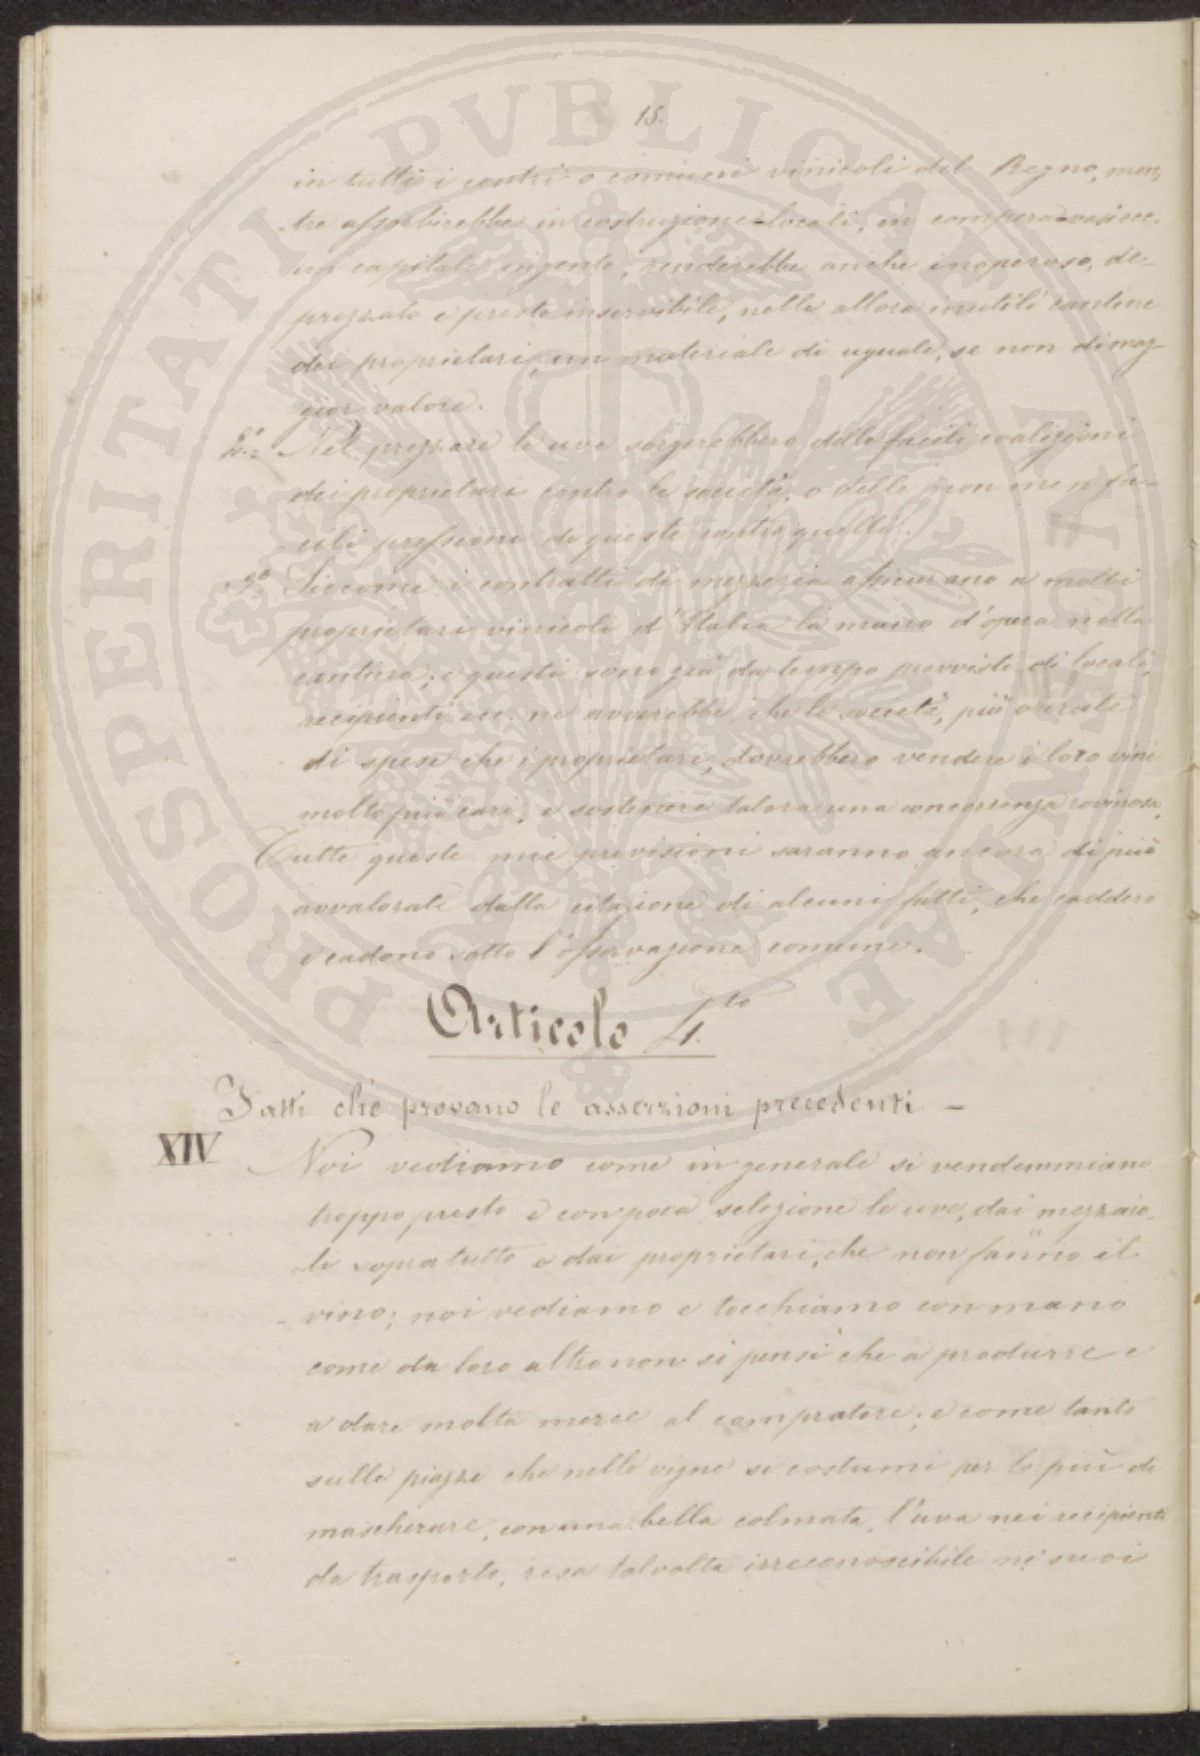 18.
in tutti i centri o comuni vinicoli del Regno, men,
tre assorbirebbe in costruzione locali, in compera vasi ecc.
un capitale ingente, renderebbe anche inoperoso, de-
prezzato e presto inservibile, nelle allora inutili cantine
dei proprietari, un materiale di uguale, se non di mag-
gior valore.
2º: Nel prezzare le uve sorgerebbero delle facili coalizioni
dei proprietari contro le società, o delle non men fa-
cili pressioni di queste contro quelli.
3º. Siccome i contratti di mezzeria assicurano a molti
proprietari vinicoli d'Italia la mano d'opera nella
cantina; e questi sono già da tempo provvisti di locali,
recipienti ecc. ne avverebbe che le società, più onerate
di spese che i proprietari, dovrebbero vendere i loro vini
molto più cari, e sostenere talora una concorrenza rovinosa,
Tutte queste mie previsioni saranno ancora di più
avvalorate dalla citazione di alcuni fatti, che caddero
e cadono sotto l'osservazione comune.
Articolo 4.to
Fatti che provano le asserzioni precedenti –
XIV Noi vediamo come in generale si vendemmiano
troppo presto e con poca selezione le uve, dai mezzaio-
li sopra tutto e dai proprietari, che non fanno il
vino; noi vediamo e tocchiamo con mano
come da loro altro non si pensi che a produrre e
a dare molta merce al compratore; e come tanto
sulle piazze che nelle vigne si costumi per lo più di
mascherare, con una bella colmata, l'uva nei recipienti
da trasporto, resa talvolta irreconoscibile ne' suoi
PROSPERITATI PVBLICAE AVGENDAE